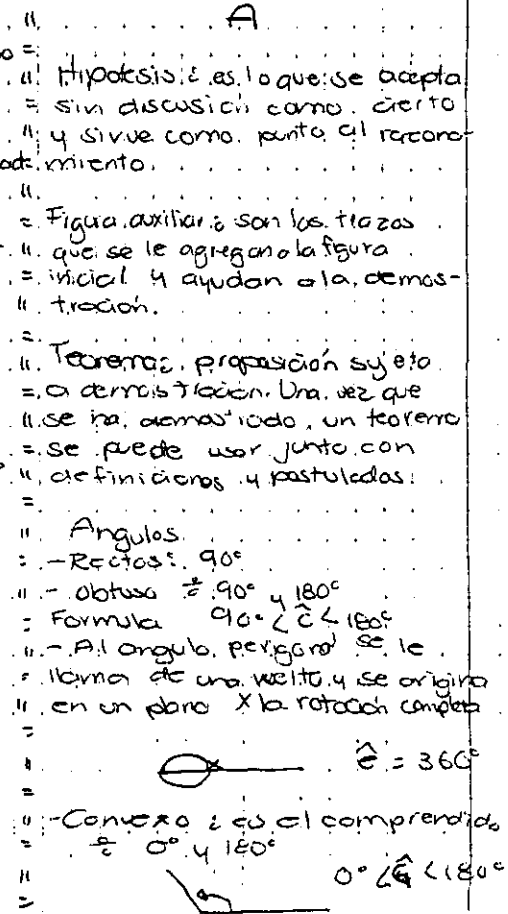 A
Hipotesis: es lo que se acepta
sin discusión como cierto
y sirve como punto al razona-
miento.
Figura auxiliar: son los trazos
que se le agregan a la figura
inicial y ayudan a la demos-
tración.
Teorema: proposición sujeto
a demostración. Una vez que
se ha demostrado, un teorema
se puede usar junto con
definiciones y postulados.
Angulos
- Rectos: 90°
- Obtuso 90° y 180°
Formula 90° < ĉ < 180°
- Al angulo perigonal se le
llama de una vuelta y se origina
en un plano X la rotación completa
ĉ = 360°
- Convexo: es el comprendido
0° y 180°
0° < < 180°